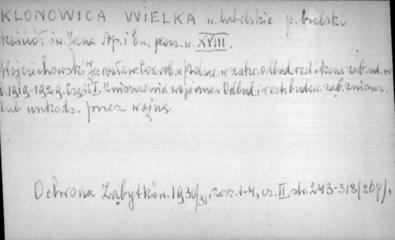 KLONOWICA WIELKA w. lubelskie p. bialski
Kościół św. Jana Ap. i Ew. pocz. w. XVIII.
Wojciechowski Jarosław Coz rob. w Polsce w zakr. Odbud. rest. i kons. zab. ud. w
l. 1919-1929. Część I. Zniszczenia wojenne. Odbud. i rest. budow. zab. zniszcz.
lub uszkodz. przez wojnę.
Ochrona Zabytków. 1930/31, zesz. 1-4, cz. II, str. 243-318 (269).